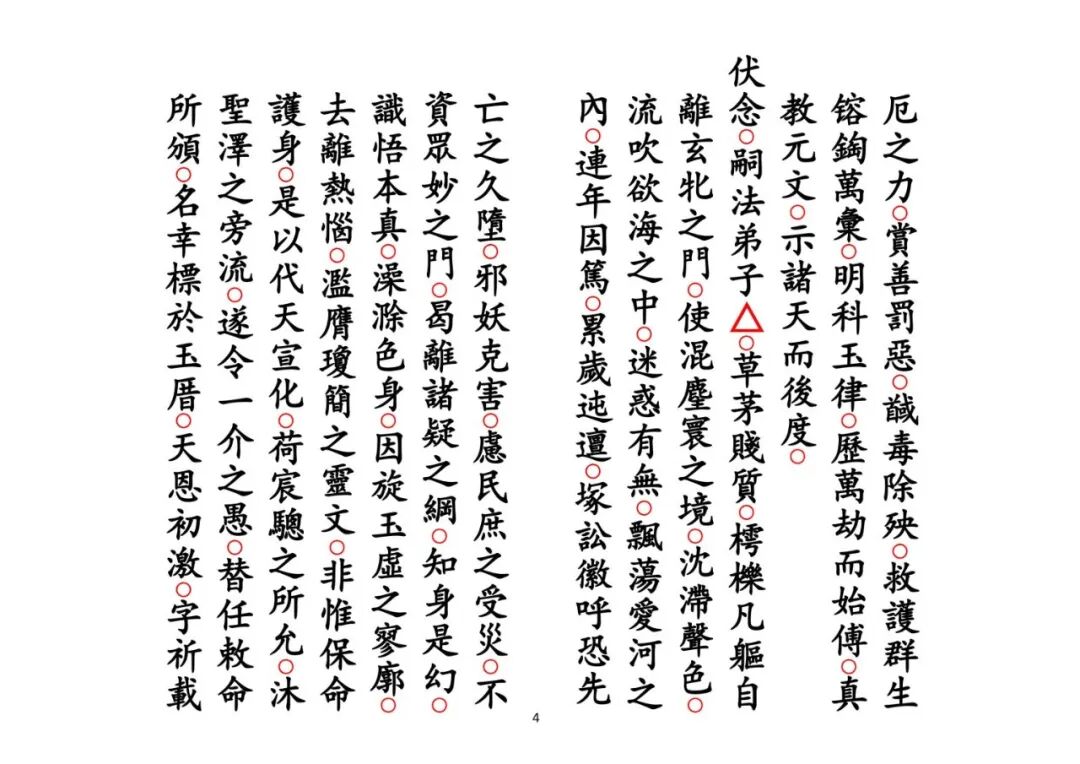 厄之力○賞善罰惡○馘毒除殃○救護群生
鎔鋾萬彙○明科玉律○歷萬劫而始傅○真
教元文○示諸天而後度○
伏念○嗣法弟子△○草茅賤質○樗櫟凡軀自
離玄牝之門○使混塵寰之境○沈滯聲色○
流吹欲海之中○迷惑有無○飄蕩愛河之
內○連年因篤○累歲迍邅○塚訟徽呼恐先
亡之久墮○邪妖克害○慮民庶之受災○不
資眾妙之門○曷離諸疑之綱○知身是幻○
識悟本真○澡滌色身○因旋玉虛之寥廓○
去離熱惱○濫膺瓊簡之靈文○非惟保命
護身○是以代天宣化○荷宸驄之所允○沐
聖澤之旁流○遂令一介之愚○替任敕命
所頒○名幸標於玉厝○天恩初激○字祈載
4